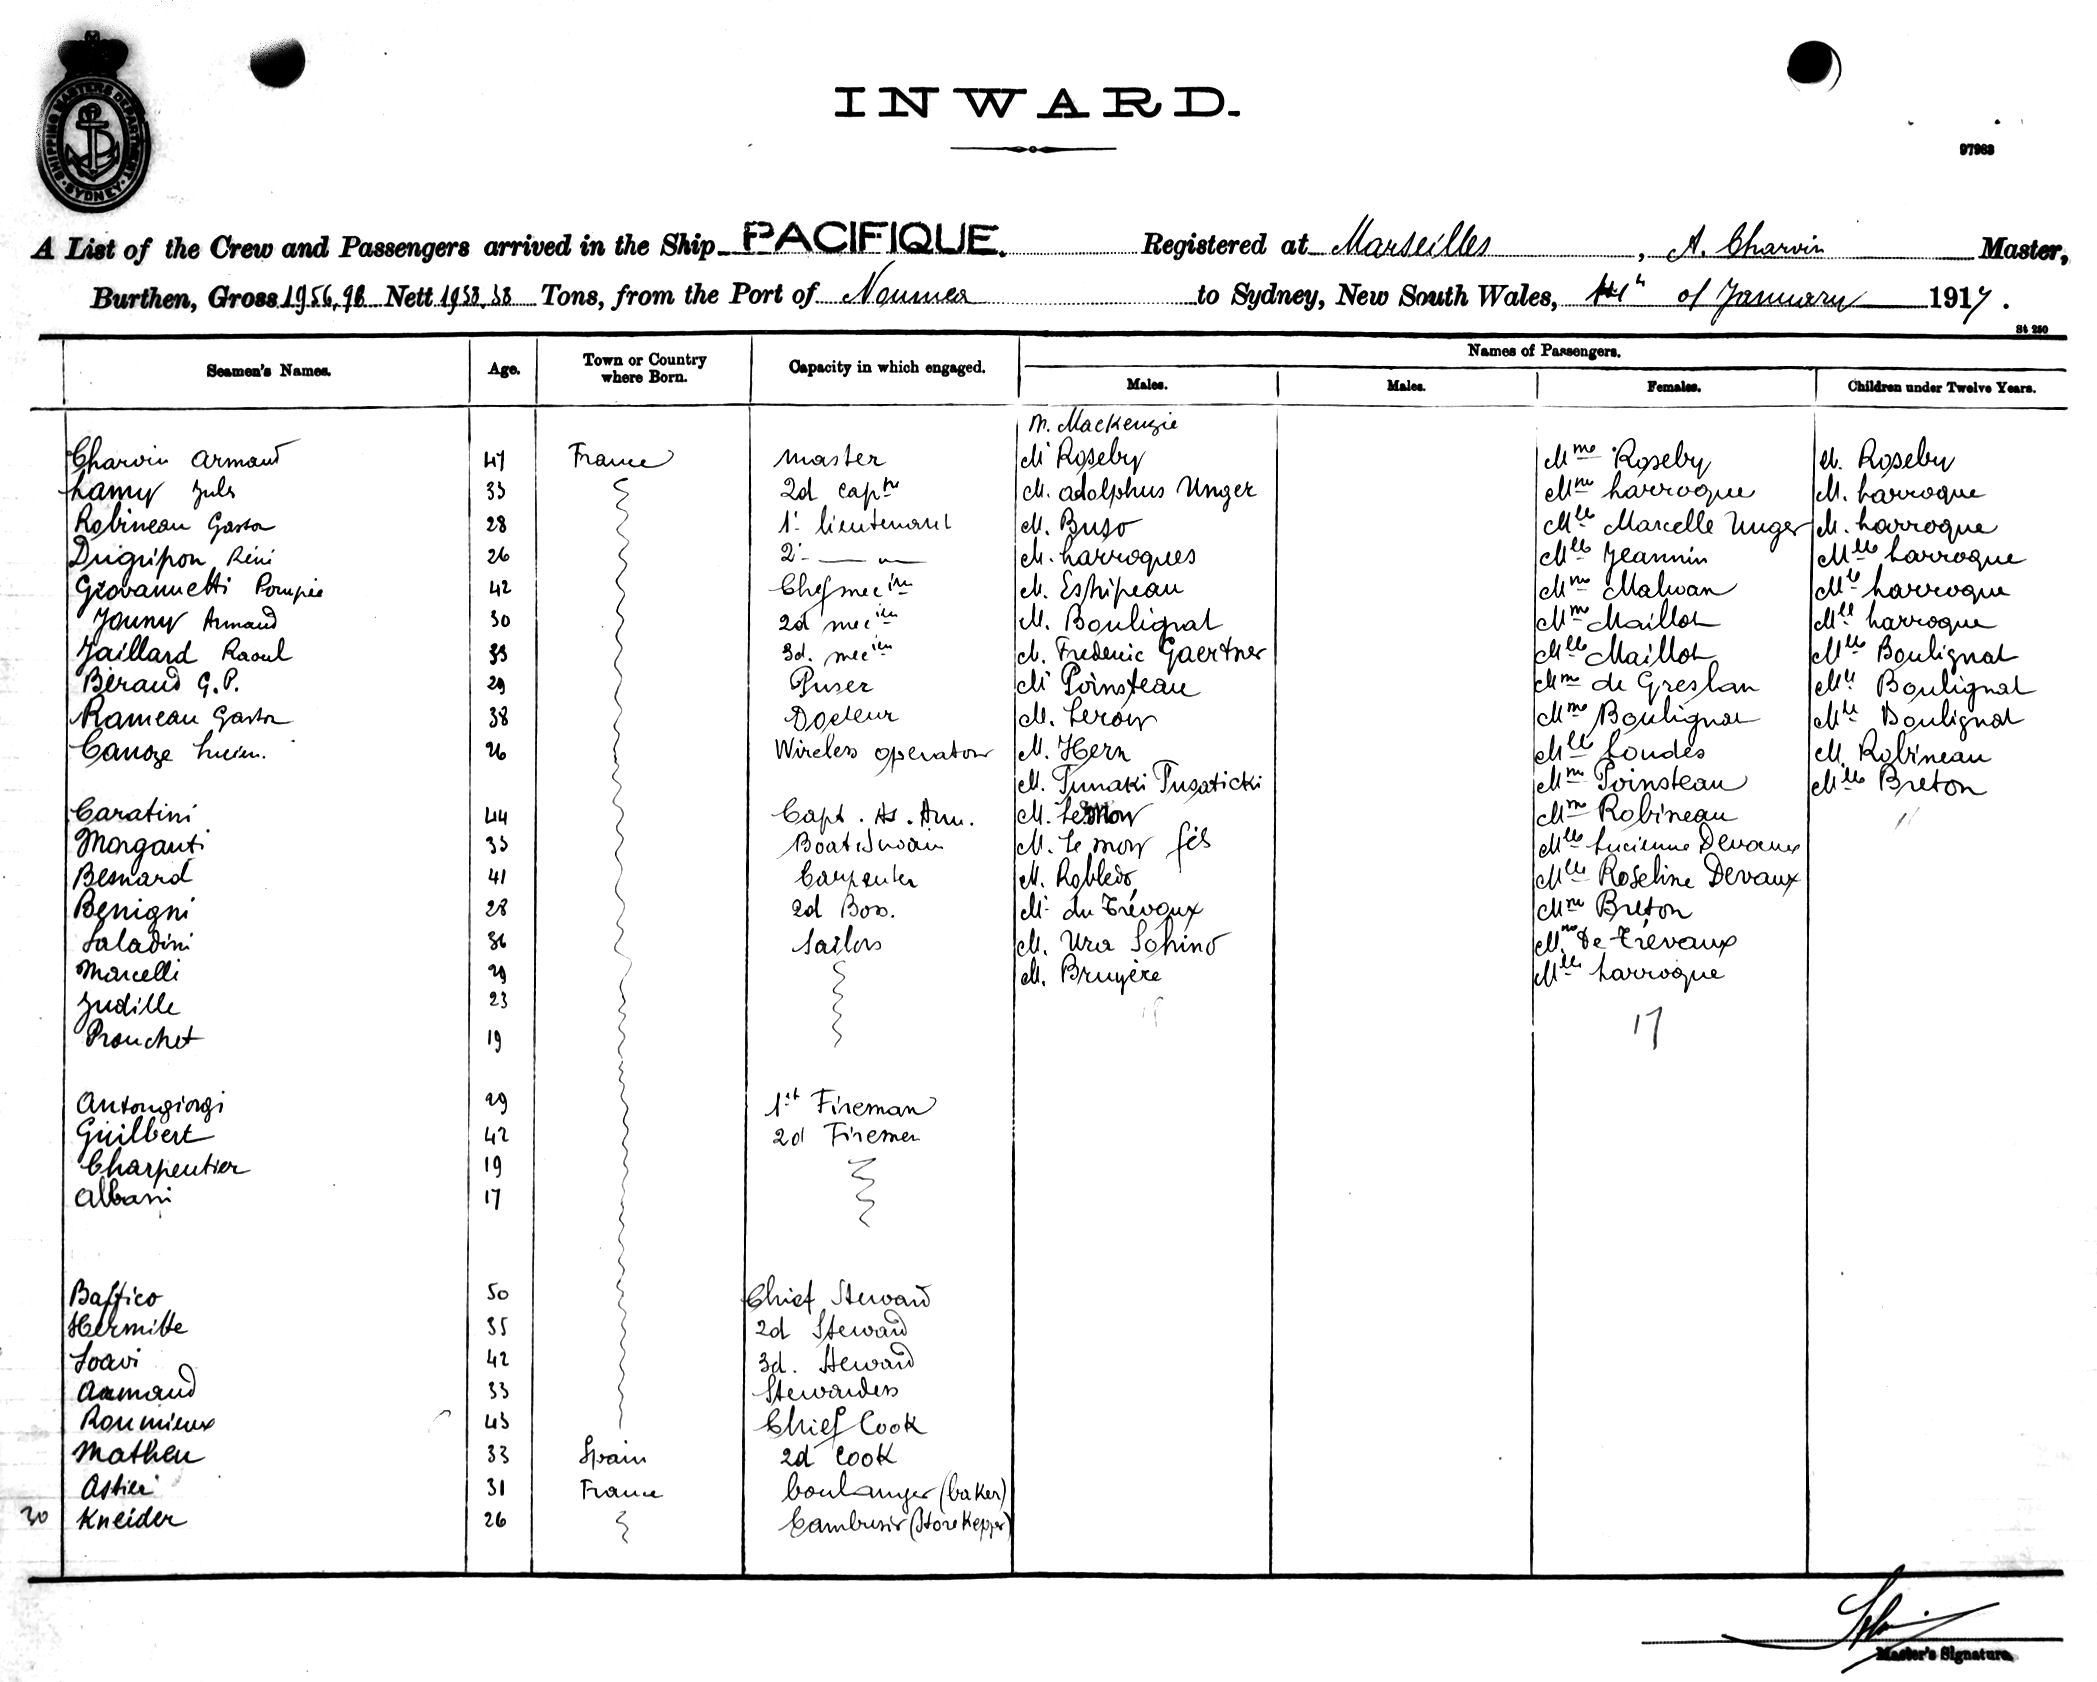 SHIPPING MASTERS DEPARTMENT · SYDNEY ·
INWARD.
97963
A List of the Crew and Passengers arrived in the Ship PACIFIQUE. Registered at Marseilles, A. Charvin Master,
Burthen, Gross 1956,98 Nett 1938,38 Tons, from the Port of Noumea to Sydney, New South Wales, of January 1917.
St 250
Seamen's Names. Age. Town or Country where Born. Capacity in which engaged. Names of Passengers.
Males. Males. Females. Children under Twelve Years.
M. Mackenzie
Charvin Armand 47 France Master M Roseby Mme Roseby M. Roseby
Lamy Jules 33 2d captne M. Adolphus Unger Mme Larroque M. Larroque
Robineau Gaston 28 1r lieutenant M. Buso Mlle Marcelle Unger M. Larroque
Dugripon Réné 26 2r — " M. Larroques Mlle Jeannin Mlle Larroque
Giovannetti Pompée 42 Chef mecien M. Estripeau Mme Malwan Mlle Larroque
Jouny Armand 30 2d mecien M. Boulignat Mme Maillot Mlle Larroque
Jaillard Raoul 33 3d. mecien M. Frederic Gaertner Mlle Maillot Mlle Boulignat
Béraud G.P. 29 Puser M Poinsteau Mme de Greslan Mlle Boulignat
Rameau Gaston 38 Docteur M. Leroux Mme Boulignat Mlle Boulignat
Canoze Lucien. 26 Wireless operator M. Hern Mlle Loudes M. Robineau
M. Tunaki Tusaticki Mme Poinsteau Mlle Breton
Caratini 44 Capt. As. Arm. M. Mme Robineau 11
Morganti 33 Boatswain M. Le mov fils Mlle Lucienne Devaux
Besnard 41 Carpenter M. Robledo Mlle Roseline Devaux
Benigni 28 2d Bos. M. du Trévoux Mme Breton
Saladini 36 Sailors M. Ura Sohino Mme De Trévaux
Marcelli 29 M. Bruyère Mlle Larroque
Judille 23
Prouchet 19 17
Antongiorgi 29 1st Fireman
Guilbert 42 2d Firemen
Charpentier 19
Albani 17
Baffico 50 Chief Steward
Hermitte 35 2d Steward
Soavi 42 3d. Steward
Armand 33 Stewardess
Roumieux 43 Chief Cook
Matheu 33 Spain 2d Cook
Astier 31 France boulanger (baker)
30 Kneider 26 Cambusir (Storekepper)
Master's Signature.